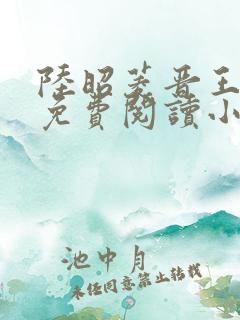 陸昭菱晋王
免費閱讀小
池中月
未经同意禁止转载